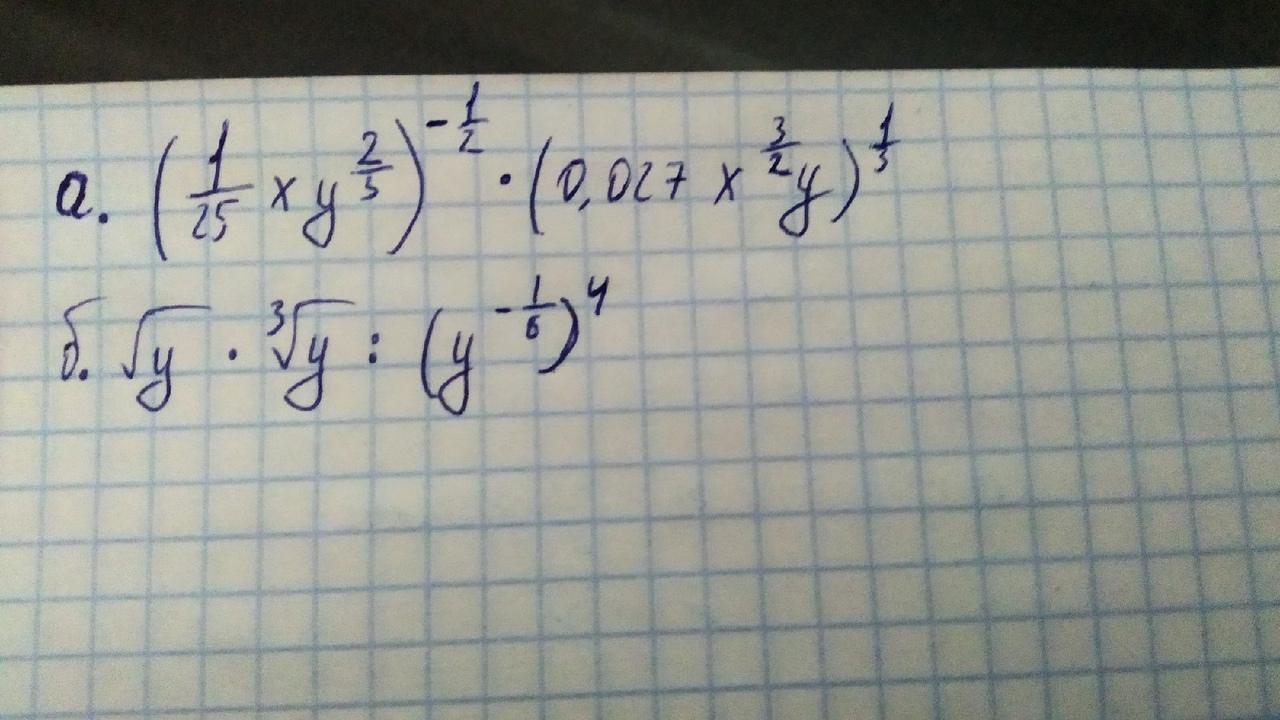 а. (1/25 x y^(2/5))^(-1/2) · (0,027 x^(3/2) y)^(1/3)
б. √y · ³√y : (y^(-1/6))^4